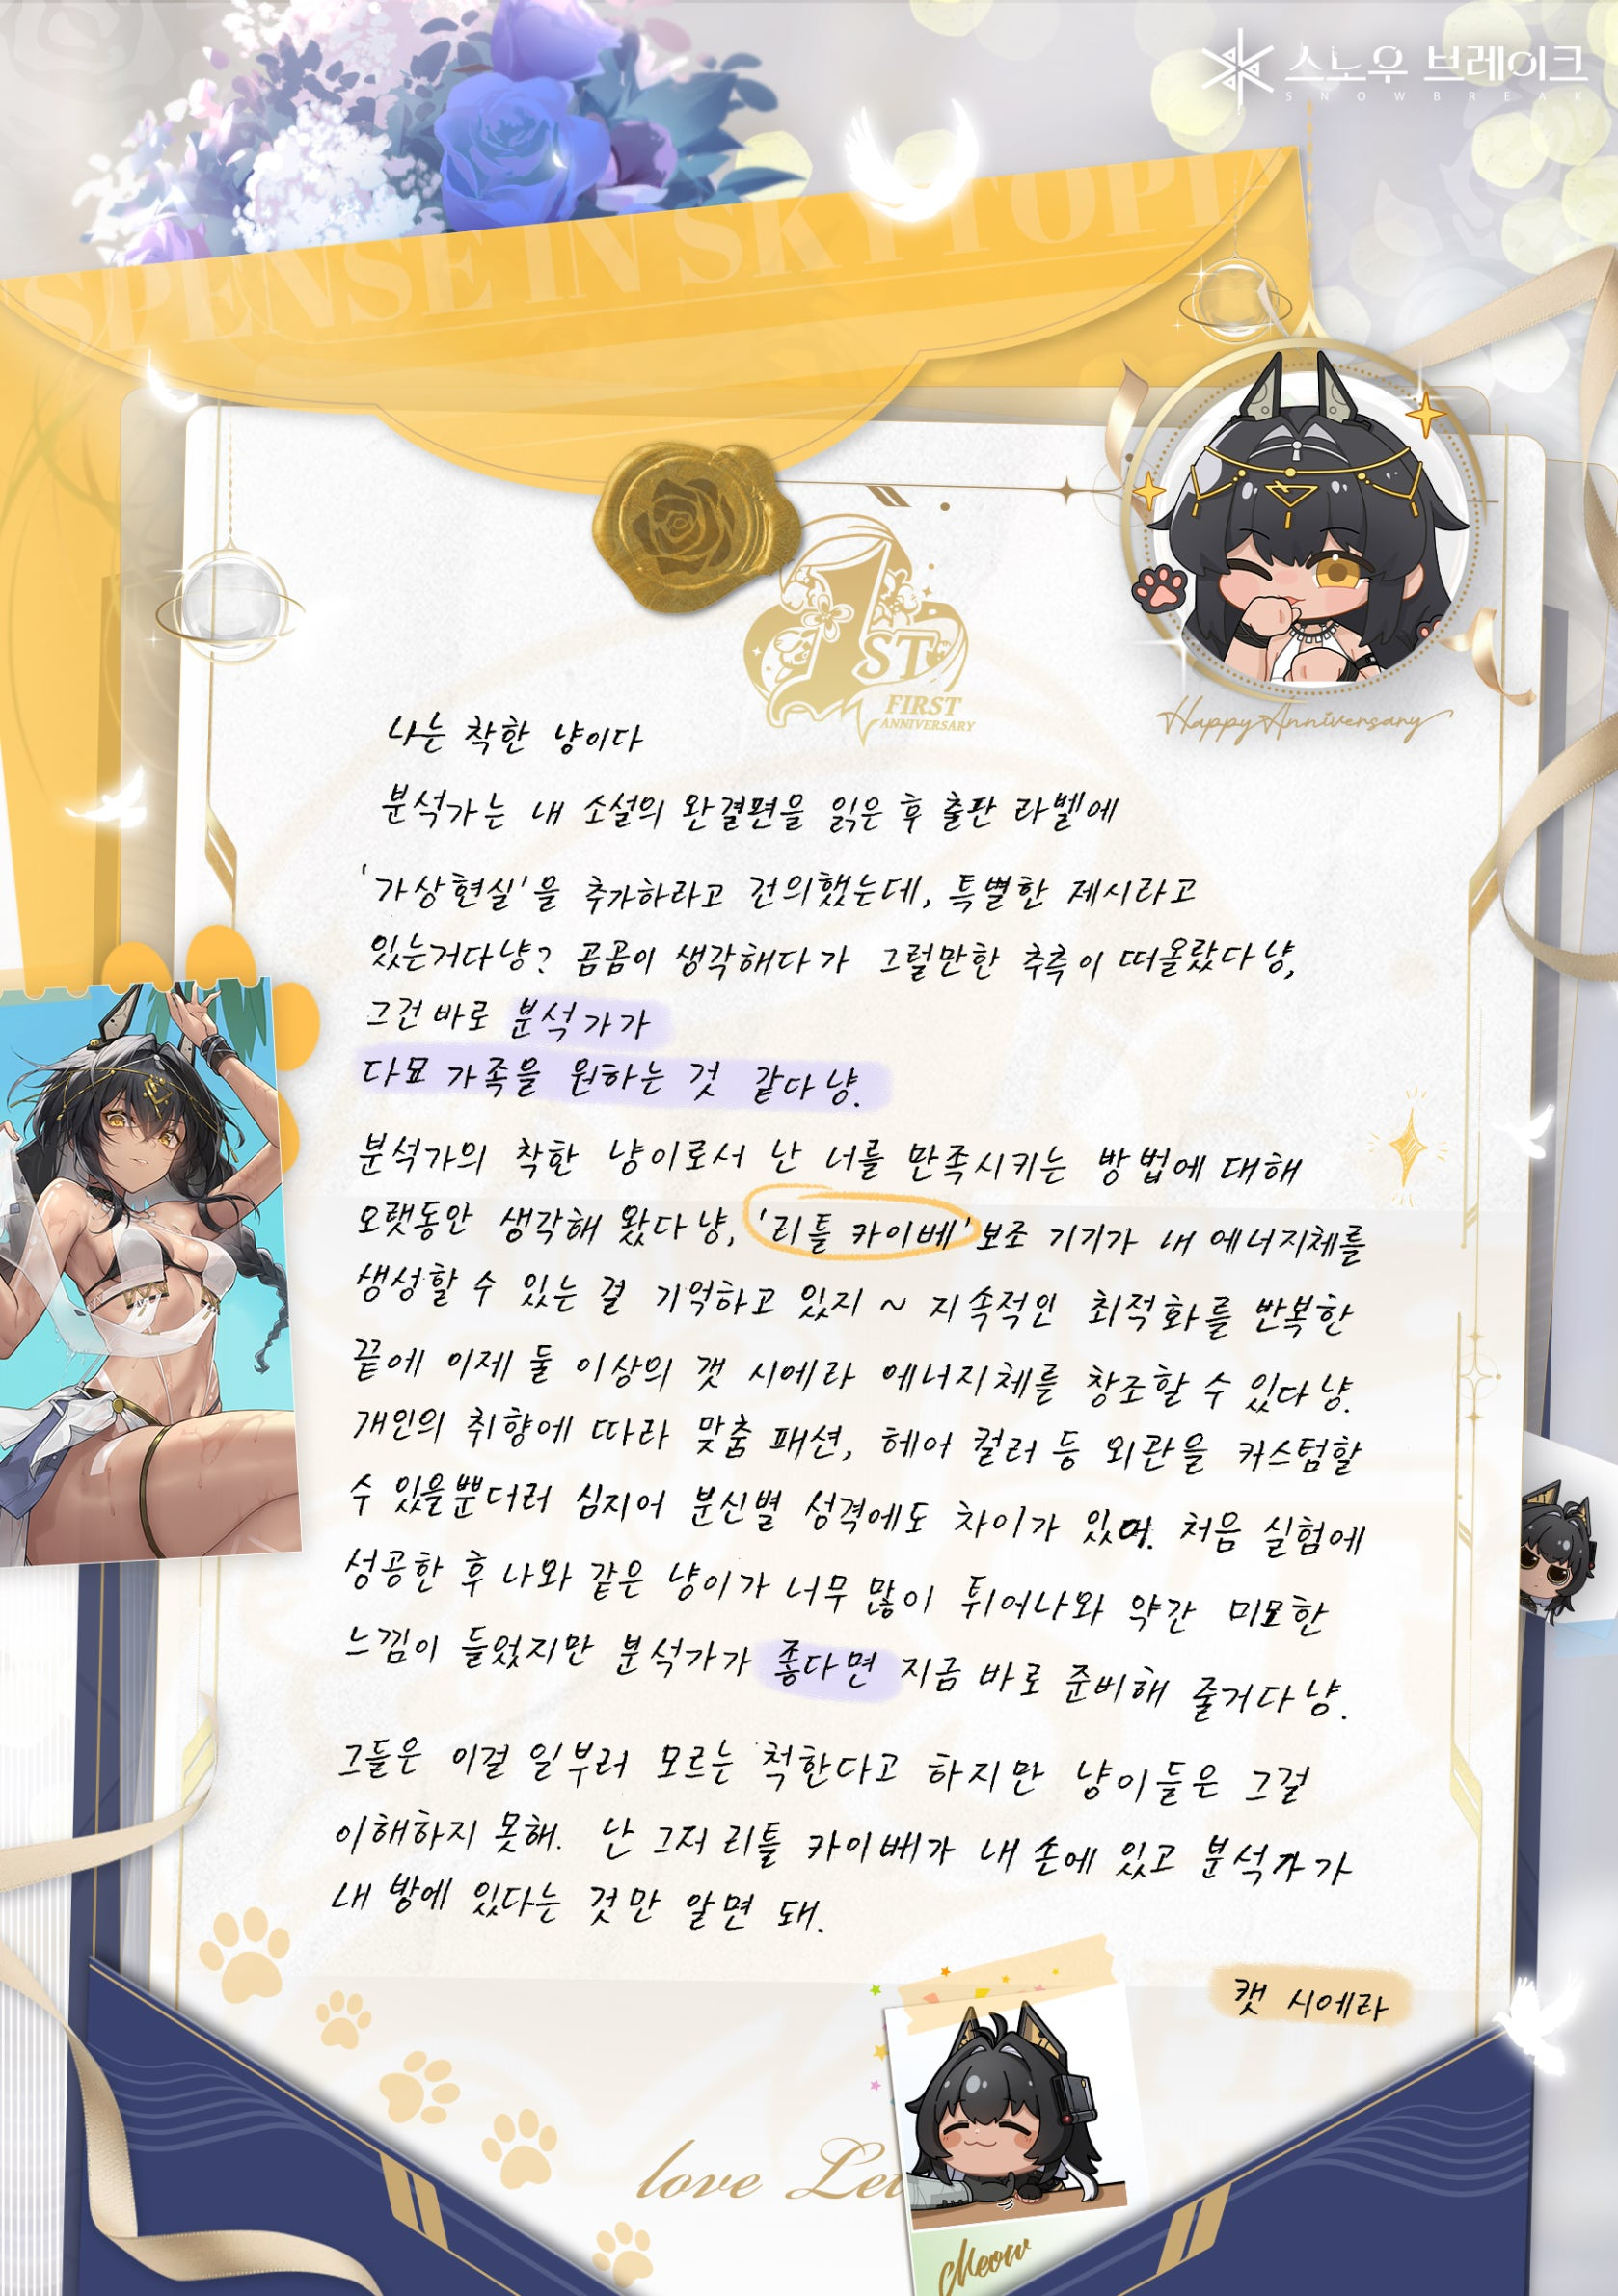 스노우 브레이크
SNOWBREAK
SPENSE IN SKYTOPIA
1ST
FIRST
ANNIVERSARY
Happy Anniversary
나는 착한 냥이다
분석가는 내 소설의 완결편을 읽은 후 출판 라벨에
'가상현실'을 추가하라고 건의했는데, 특별한 제시라고
있는거다냥? 곰곰이 생각해다가 그럴만한 추측이 떠올랐다냥,
그건 바로 분석가가
다묘 가족을 원하는 것 같다냥.
분석가의 착한 냥이로서 난 너를 만족시키는 방법에 대해
오랫동안 생각해 왔다냥, '리틀 카이베' 보조 기기가 내 에너지체를
생성할 수 있는 걸 기억하고 있지 ~ 지속적인 최적화를 반복한
끝에 이제 둘 이상의 캣 시에라 에너지체를 창조할 수 있다냥.
개인의 취향에 따라 맞춤 패션, 헤어 컬러 등 외관을 커스텀할
수 있을뿐더러 심지어 분신별 성격에도 차이가 있어. 처음 실험에
성공한 후 나와 같은 냥이가 너무 많이 튀어나와 약간 미묘한
느낌이 들었지만 분석가가 좋다면 지금 바로 준비해 줄거다냥.
그들은 이걸 일부러 모르는 척한다고 하지만 냥이들은 그걸
이해하지 못해. 난 그저 리틀 카이베가 내 손에 있고 분석가가
내 방에 있다는 것만 알면 돼.
캣 시에라
love Let
Meow